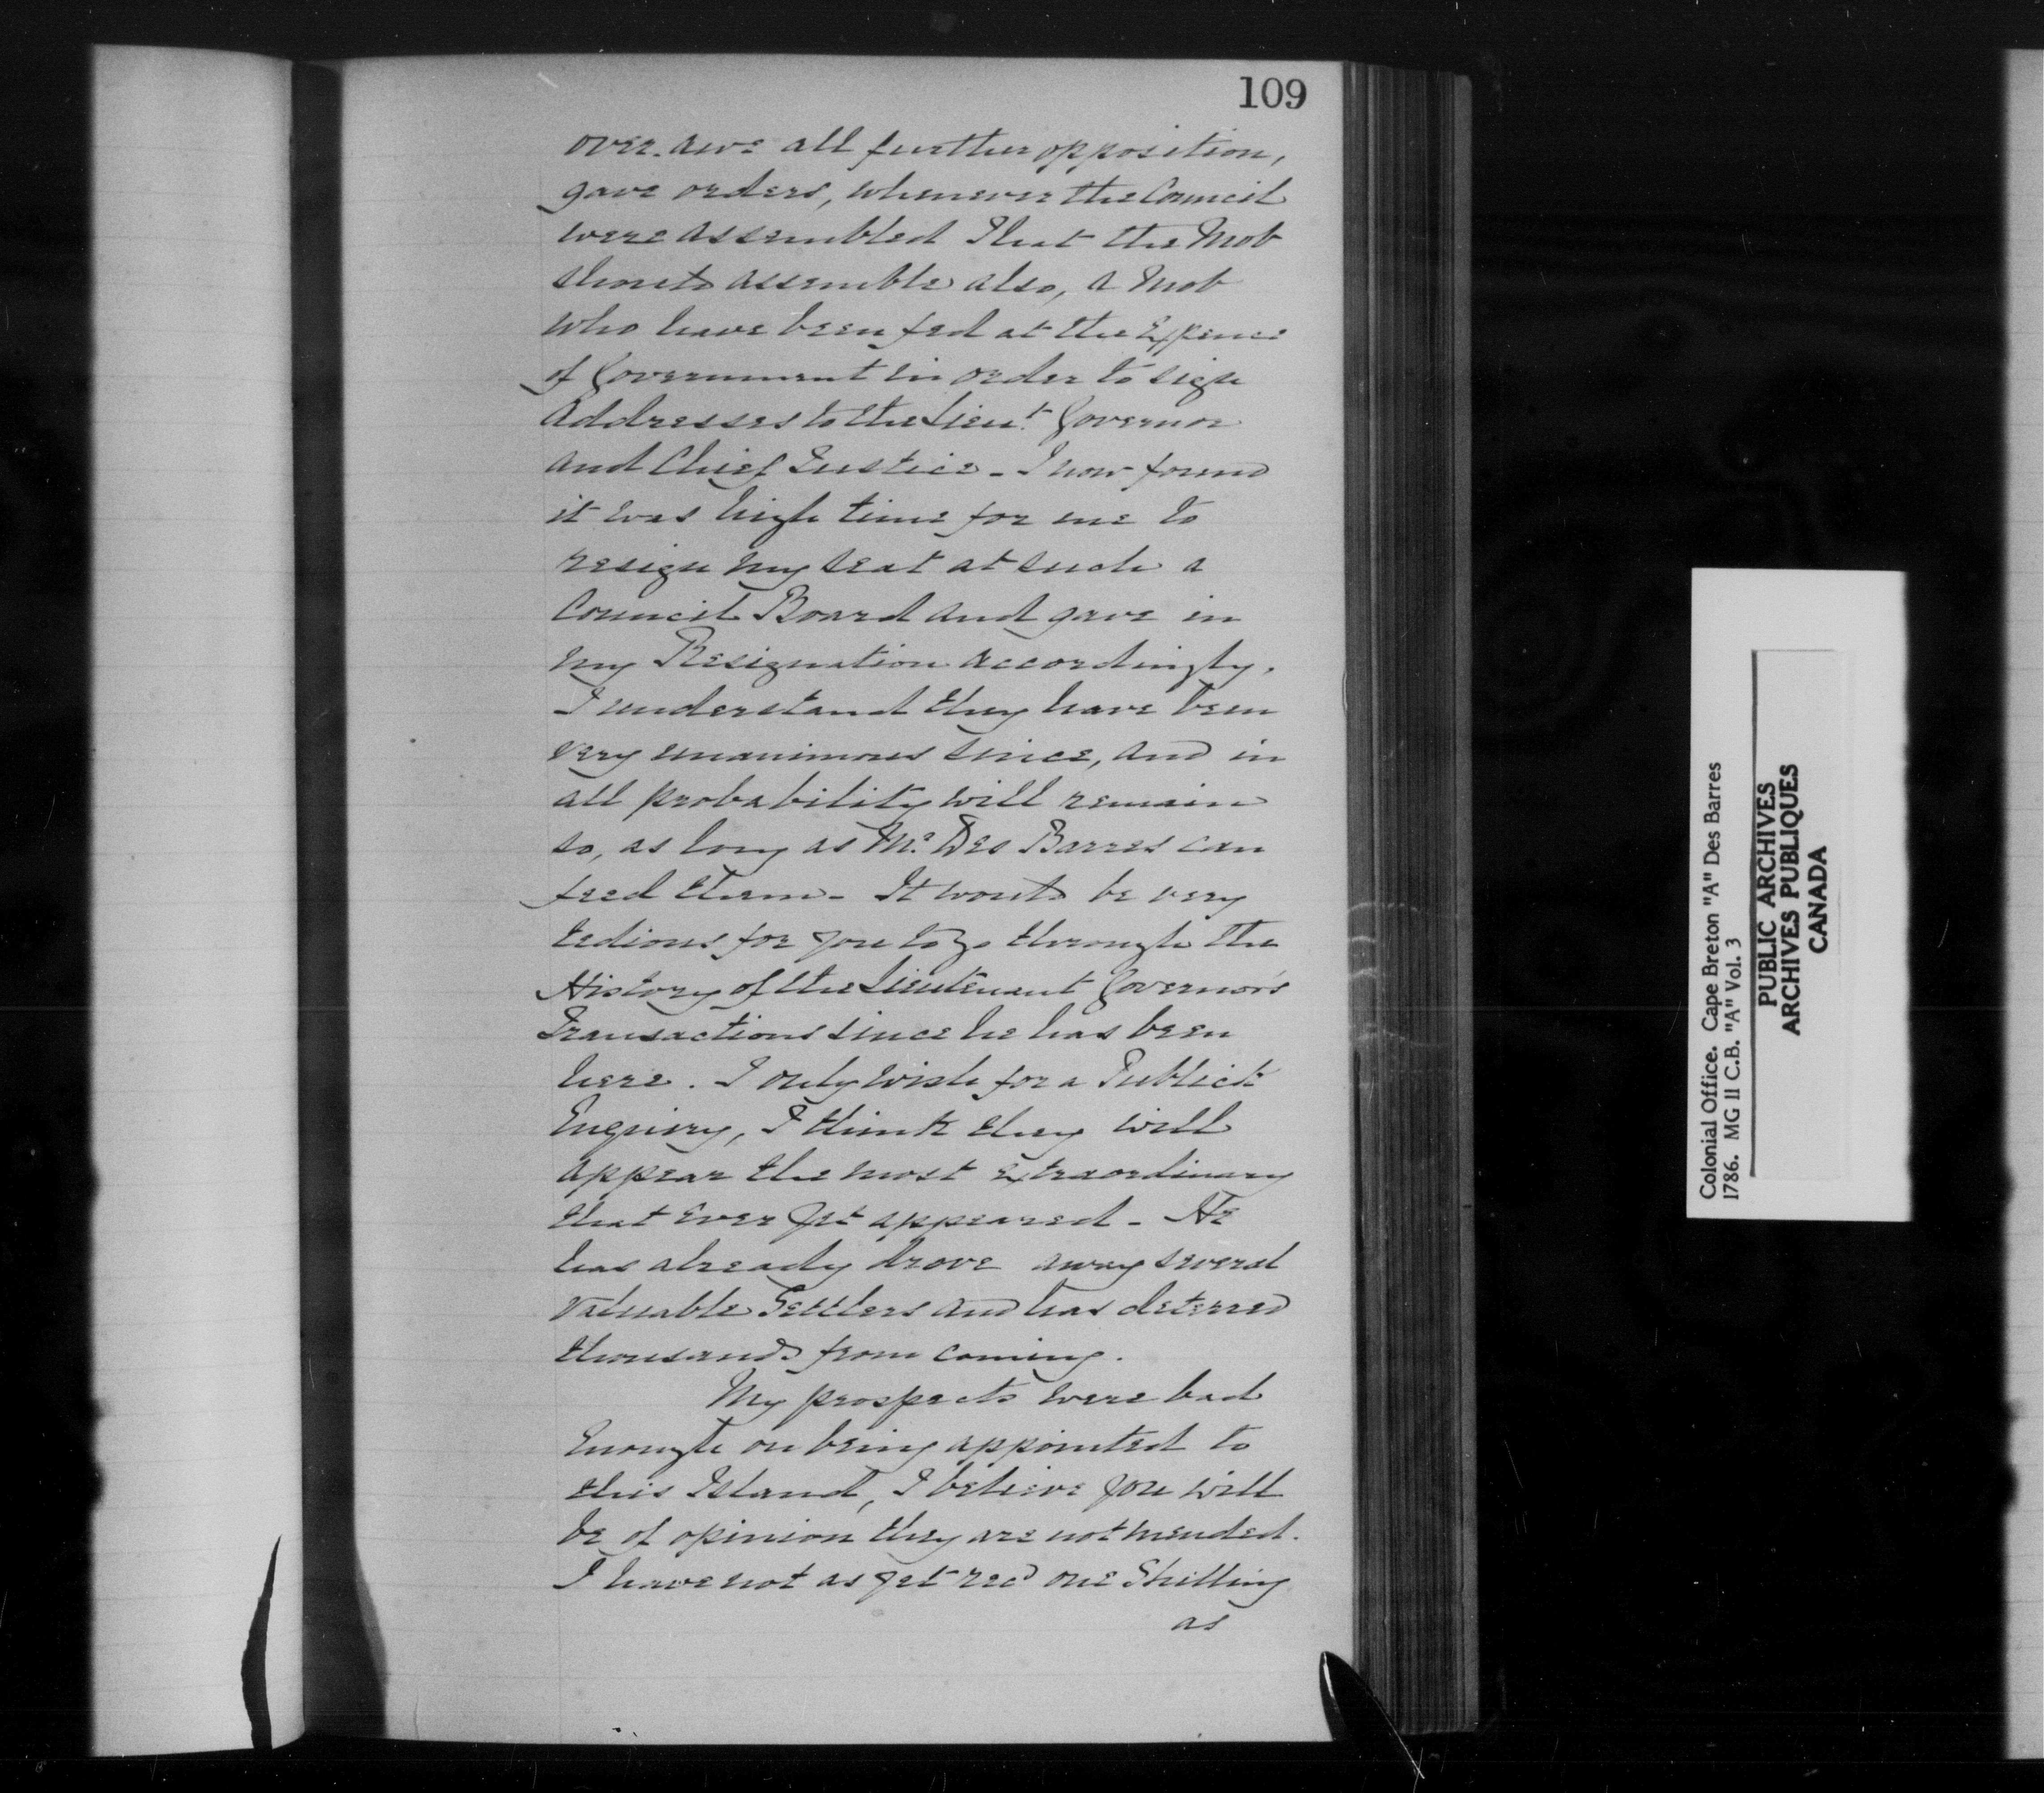 109
over-awe all further opposition,
gave orders, whenever the Council
were assembled that the Mob
should assemble also, a Mob
who have been fed at the Expence
of Government in order to sign
Addresses to the Lieu.t Governor
and Chief Justice - I now found
it was high time for me to
resign my seat at such a
Council Board and gave in
my Resignation accordingly.
I understand they have been
very unanimous since, and in
all probability will remain
so, as long as Mr. Des Barres can
feed them - It would be very
tedious for you to go through the
History of the Lieutenant Governors
Transactions since he has been
here. I only wish for a Publick
Enquiry, I think they will
appear the most extraordinary
that Ever yet appeared - He
has already drove away several
valuable Settlers and has deterred
thousands from coming.
My prospects were bad
Enough on being appointed to
this Island, I believe you will
be of opinion they are not mended.
I have not as yet recd one Shilling
as
Colonial Office. Cape Breton "A" Des Barres
1786. MG II C.B. "A" Vol. 3
PUBLIC ARCHIVES
ARCHIVES PUBLIQUES
CANADA